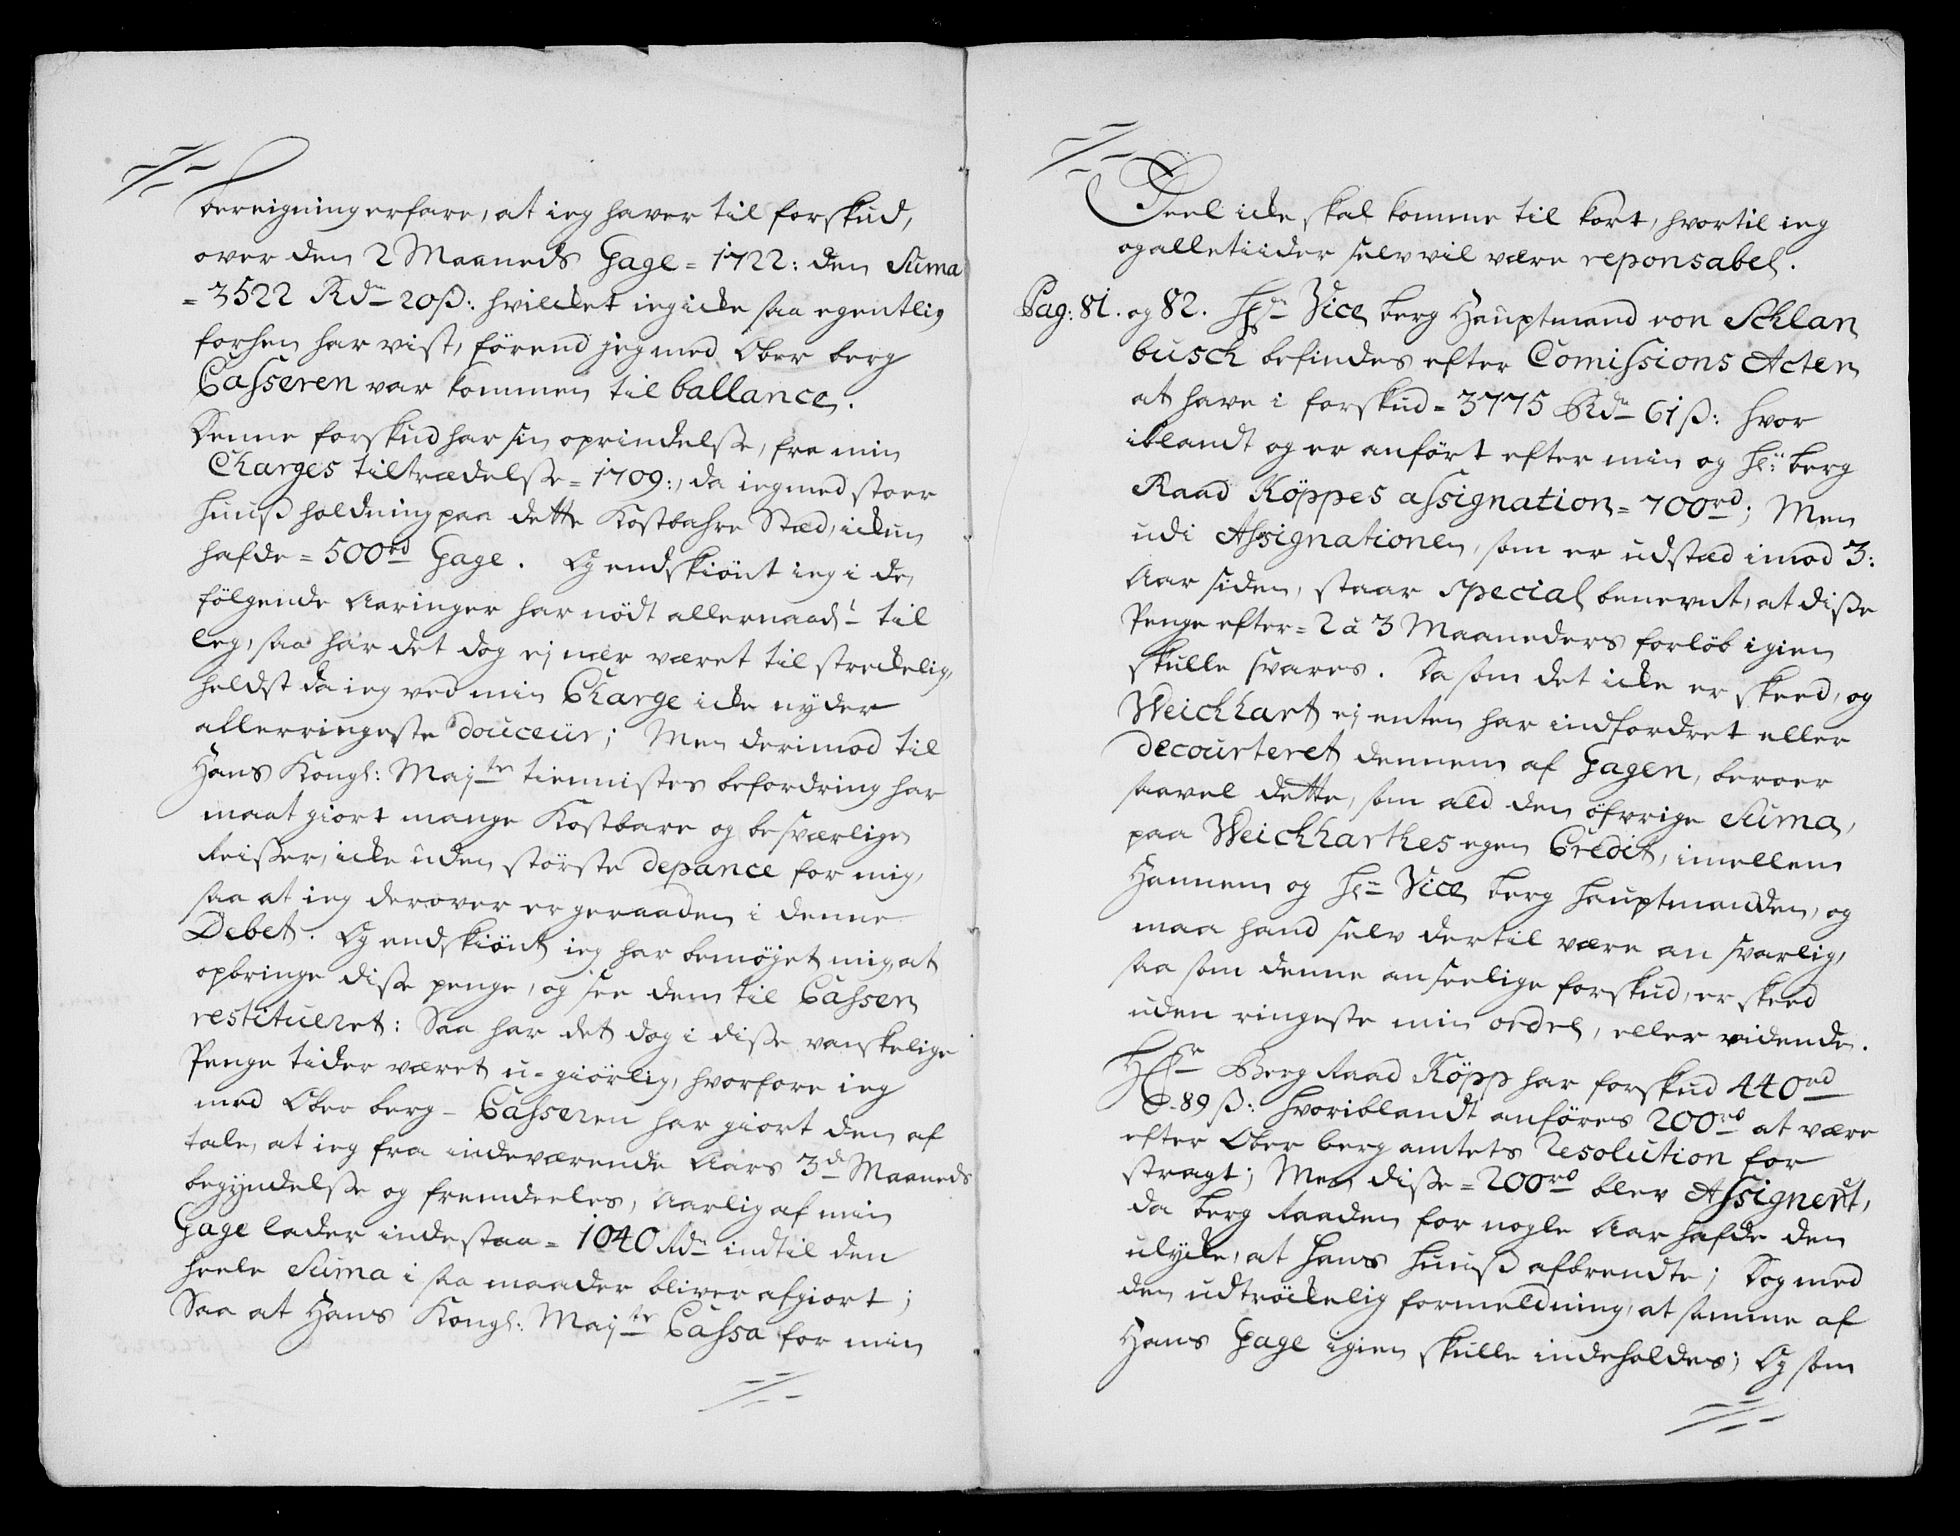 bereigning erfare, at ieg haver til forskud,
over den 2 Maaneds Gage = 1722: den Suma
= 3522 Rdr 20 ß: hvilcket ieg icke saa egentlig
forhen har vist, førend jeg med Ober berg
Casseren var kommen til ballance.
Denne forskud har sin oprindelsse, fra min
Charges tiltrædelsse = 1709:, da ieg med stoer
Huuß holdning paa dette Kostbahre Stæd, ickun
hafde = 500rd Gage. Og endskiönt ieg i de
fölgende Aaringer har nödt allernaadt til
leg, saa har det dog ej nær været til streckelig,
heldst da ieg ved min Charge icke nyder
allerringeste douceur; Men derimod til
Hans Kongl: Majts tiennistes befordring har
maat giort mange Kostbare og besværlige
Reisser, icke uden störste depance for mig,
saa at ieg derover er geraaden i denne
Debet. Og endskiönt ieg har bemöjet mig, at
opbringe disse penge, og see dem til Cassen
restitueret: Saa har det dog i disse vanskelige
Penge tider været u-giörlig, hvorfore ieg
med Ober berg-Casseren har giort den af
tale, at ieg fra indeværende Aars 3de Maaneds
begyndelsse og fremdeeles, Aarlig af min
Gage lader indestaa = 1040 Rdr indtil den
heele Suma i saa maader bliver afgiort;
Saa at Hans Kongl: Majts Cassa for min
Deel icke skal komme til kort, hvortil ieg
og alletiider selv vil være reponsabel.
Pag: 81. og 82. Hr Vice berg Hauptmand von Schlan
busch befindes efter Comissions Acten
at have i forskud = 3775 Rdr 61 ß: hvor
iblandt og er anført efter min og Hr berg
Raad Köppes assignation = 700rd; Men
udi Assignationen, som er udstæd imod 3:
Aar siden, staar special benevnt, at disse
Penge efter = 2 à 3 Maaneders forlöb igien
skulle svares. Da som det icke er skeed, og
Weichhart ej enten har indfordret eller
decourteret dennem af Gagen, beroer
saavel dette, som ald den öfvrige Suma,
paa Weichharthes egen Credit, imellem
Hannem og Hr Vice berg Hauptmanden, og
maa hand selv dertil være ansvarlig,
saa som denne anseelige forskud, er skeed
uden ringeste min ordel, eller vidende.
Hr Berg Raad Köpp har forskud 440rd
89 ß: hvoriblandt anföres 200rd at være
efter Ober berg amtets Resolution for
stragt; Men disse = 200rd blev Assigneret,
da berg Raaden for nogle Aar hafde den
ulycke, at Hans Huuß afbrendte; Dog med
den udtröckelig formeldning, at samme af
Hans Gage igien skulle indeholdes; Og som